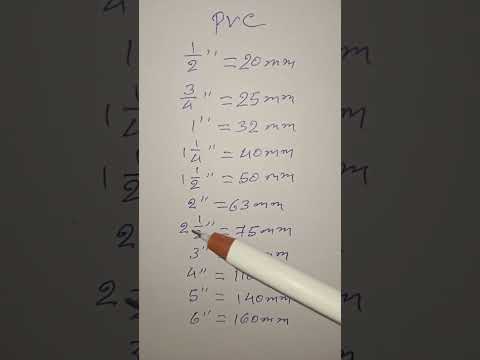 PVC
1/2" = 20mm
3/4" = 25mm
1" = 32mm
1 1/4" = 40mm
1 1/2" = 50mm
2" = 63mm
2 1/2" = 75mm
3"
4" = 110
5" = 140mm
6" = 160mm